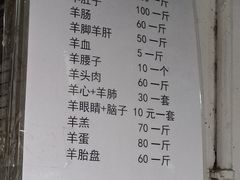 羊肚子 100一斤
羊肠 60一斤
羊脚羊肝 50一斤
羊血 5一斤
羊腰子 10一个
羊头肉 60一斤
羊心+羊肺 30一套
羊眼睛+脑子 10元一套
羊羔 70一斤
羊蛋 80一斤
羊胎盘 60一斤